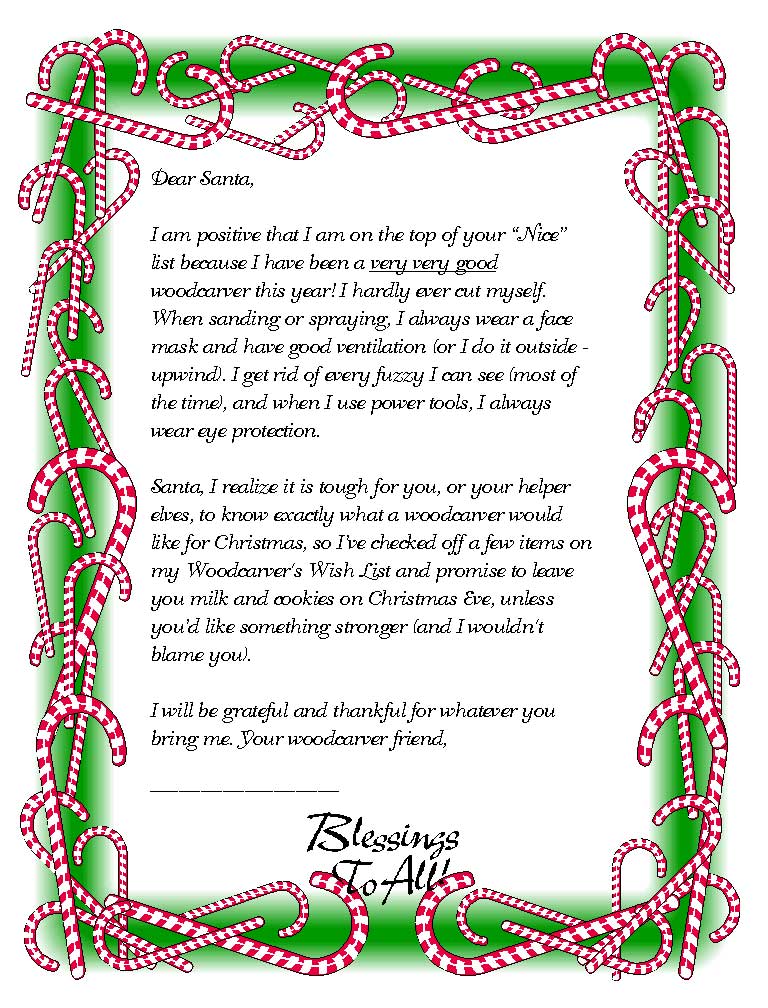 Dear Santa,
I am positive that I am on the top of your “Nice”
list because I have been a very very good
woodcarver this year! I hardly ever cut myself.
When sanding or spraying, I always wear a face
mask and have good ventilation (or I do it outside -
upwind). I get rid of every fuzzy I can see (most of
the time), and when I use power tools, I always
wear eye protection.
Santa, I realize it is tough for you, or your helper
elves, to know exactly what a woodcarver would
like for Christmas, so I've checked off a few items on
my Woodcarver's Wish List and promise to leave
you milk and cookies on Christmas Eve, unless
you'd like something stronger (and I wouldn't
blame you).
I will be grateful and thankful for whatever you
bring me. Your woodcarver friend,
_________________
Blessings
To All!